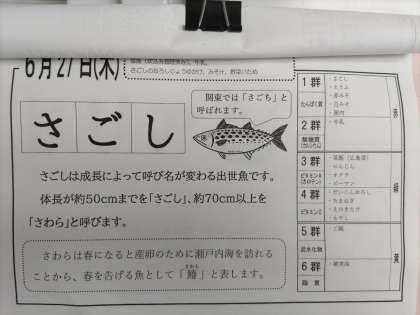 6月27日(木)
さごしのおろしじょうゆかけ、みそ汁、野菜いため
さごし
関東では「さごち」と
呼ばれます。
さごしは成長によって呼び名が変わる出世魚です。
体長が約50cmまでを「さごし」、約70cm以上を
「さわら」と呼びます。
さわらは春になると産卵のために瀬戸内海を訪れる
ことから、春を告げる魚として「鰆」と表します。
さわら
1群
たんぱく質
・さごし
・とうふ
・赤みそ
・白みそ
・豚肉
2群
無機質
(カルシウム)
・牛乳
3群
ビタミンA
(カロテン)
・にんじん
・オクラ
・ピーマン
4群
ビタミンC
・だいこんおろし
・たまねぎ
・えのきたけ
・もやし
5群
炭水化物
・ご飯
6群
脂質
赤
緑
黄